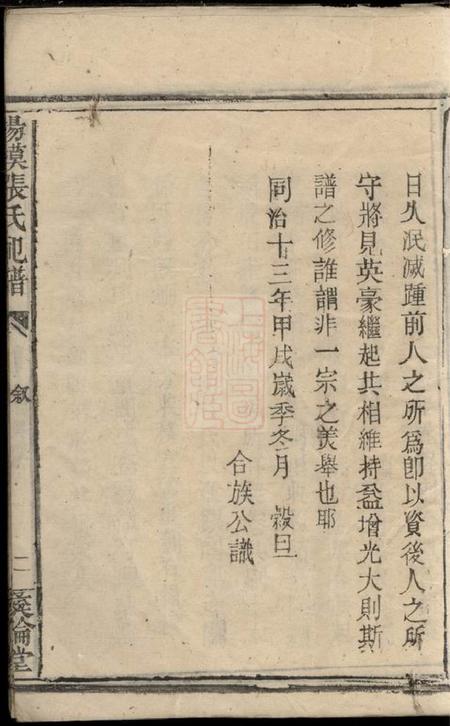 日久泯滅踵前人之所爲卽以資後人之所
守將見英豪繼起共相維持益增光大則斯
譜之修誰謂非一宗之美舉也耶
同治十三年甲戌歲季冬月 穀旦
合族公識
張氏祀譜
敘
二
彝倫堂
上海圖書館藏